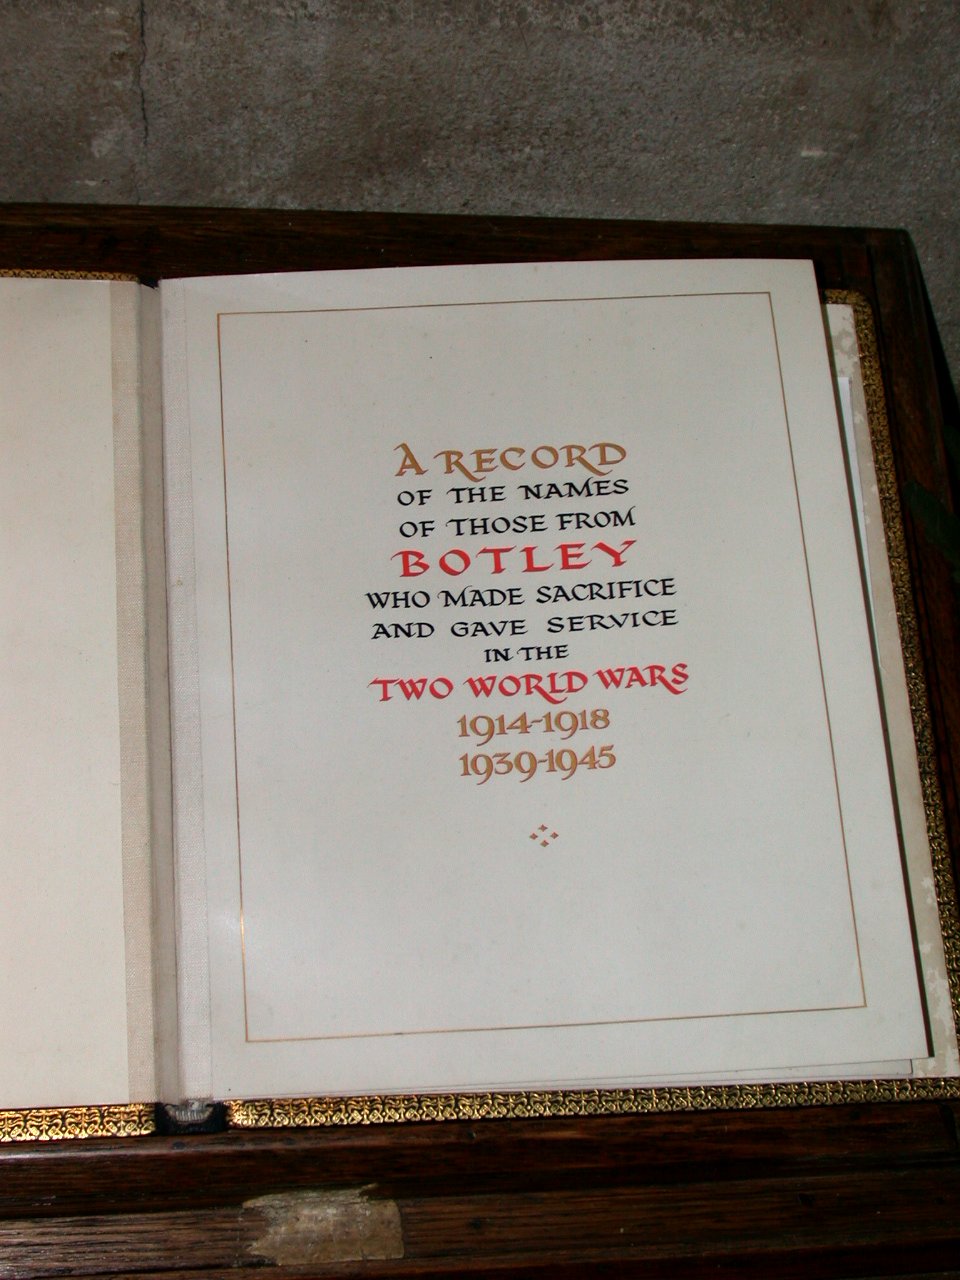 A RECORD
OF THE NAMES
OF THOSE FROM
BOTLEY
WHO MADE SACRIFICE
AND GAVE SERVICE
IN THE
TWO WORLD WARS
1914-1918
1939-1945